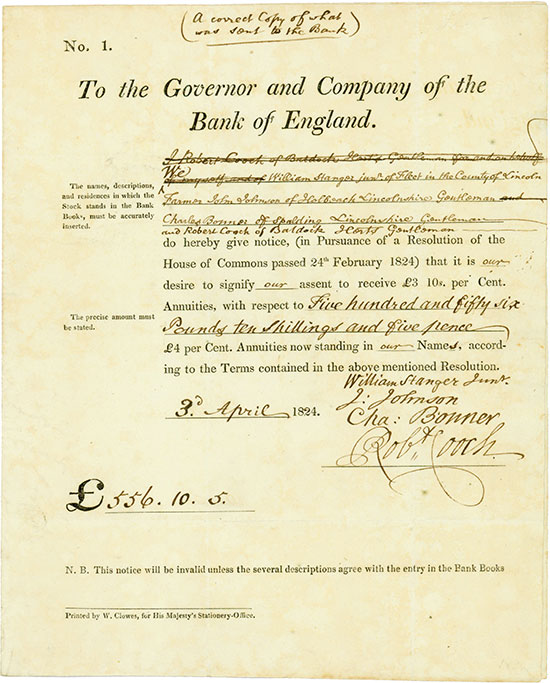 (A correct Copy of what
was sent to the Bank)
No. 1.
To the Governor and Company of the
Bank of England.
I Robert Cooch of Baldock Herts Gentleman for and on behalf
We
of myself and of William Stanger junr. of Fleet in the County of Lincoln
Farmer John Johnson of Holbeach Lincolnshire Gentleman and
Charles Bonner of Spalding Lincolnshire Gentleman
and Robert Cooch of Baldock Herts Gentleman
The names, descriptions,
and residences in which the
Stock stands in the Bank
Books, must be accurately
inserted.
do hereby give notice, (in Pursuance of a Resolution of the
House of Commons passed 24th February 1824) that it is our
desire to signify our assent to receive £3 10s. per Cent.
Annuities, with respect to Five hundred and fifty six
Pounds ten shillings and five pence
The precise amount must
be stated.
£4 per Cent. Annuities now standing in our Names, accord-
ing to the Terms contained in the above mentioned Resolution.
William Stanger Junr.
J: Johnson
3.d April 1824.
Cha: Bonner
Robt. Cooch.
£556. 10. 5.
N. B. This notice will be invalid unless the several descriptions agree with the entry in the Bank Books
Printed by W. Clowes, for His Majesty's Stationery-Office.